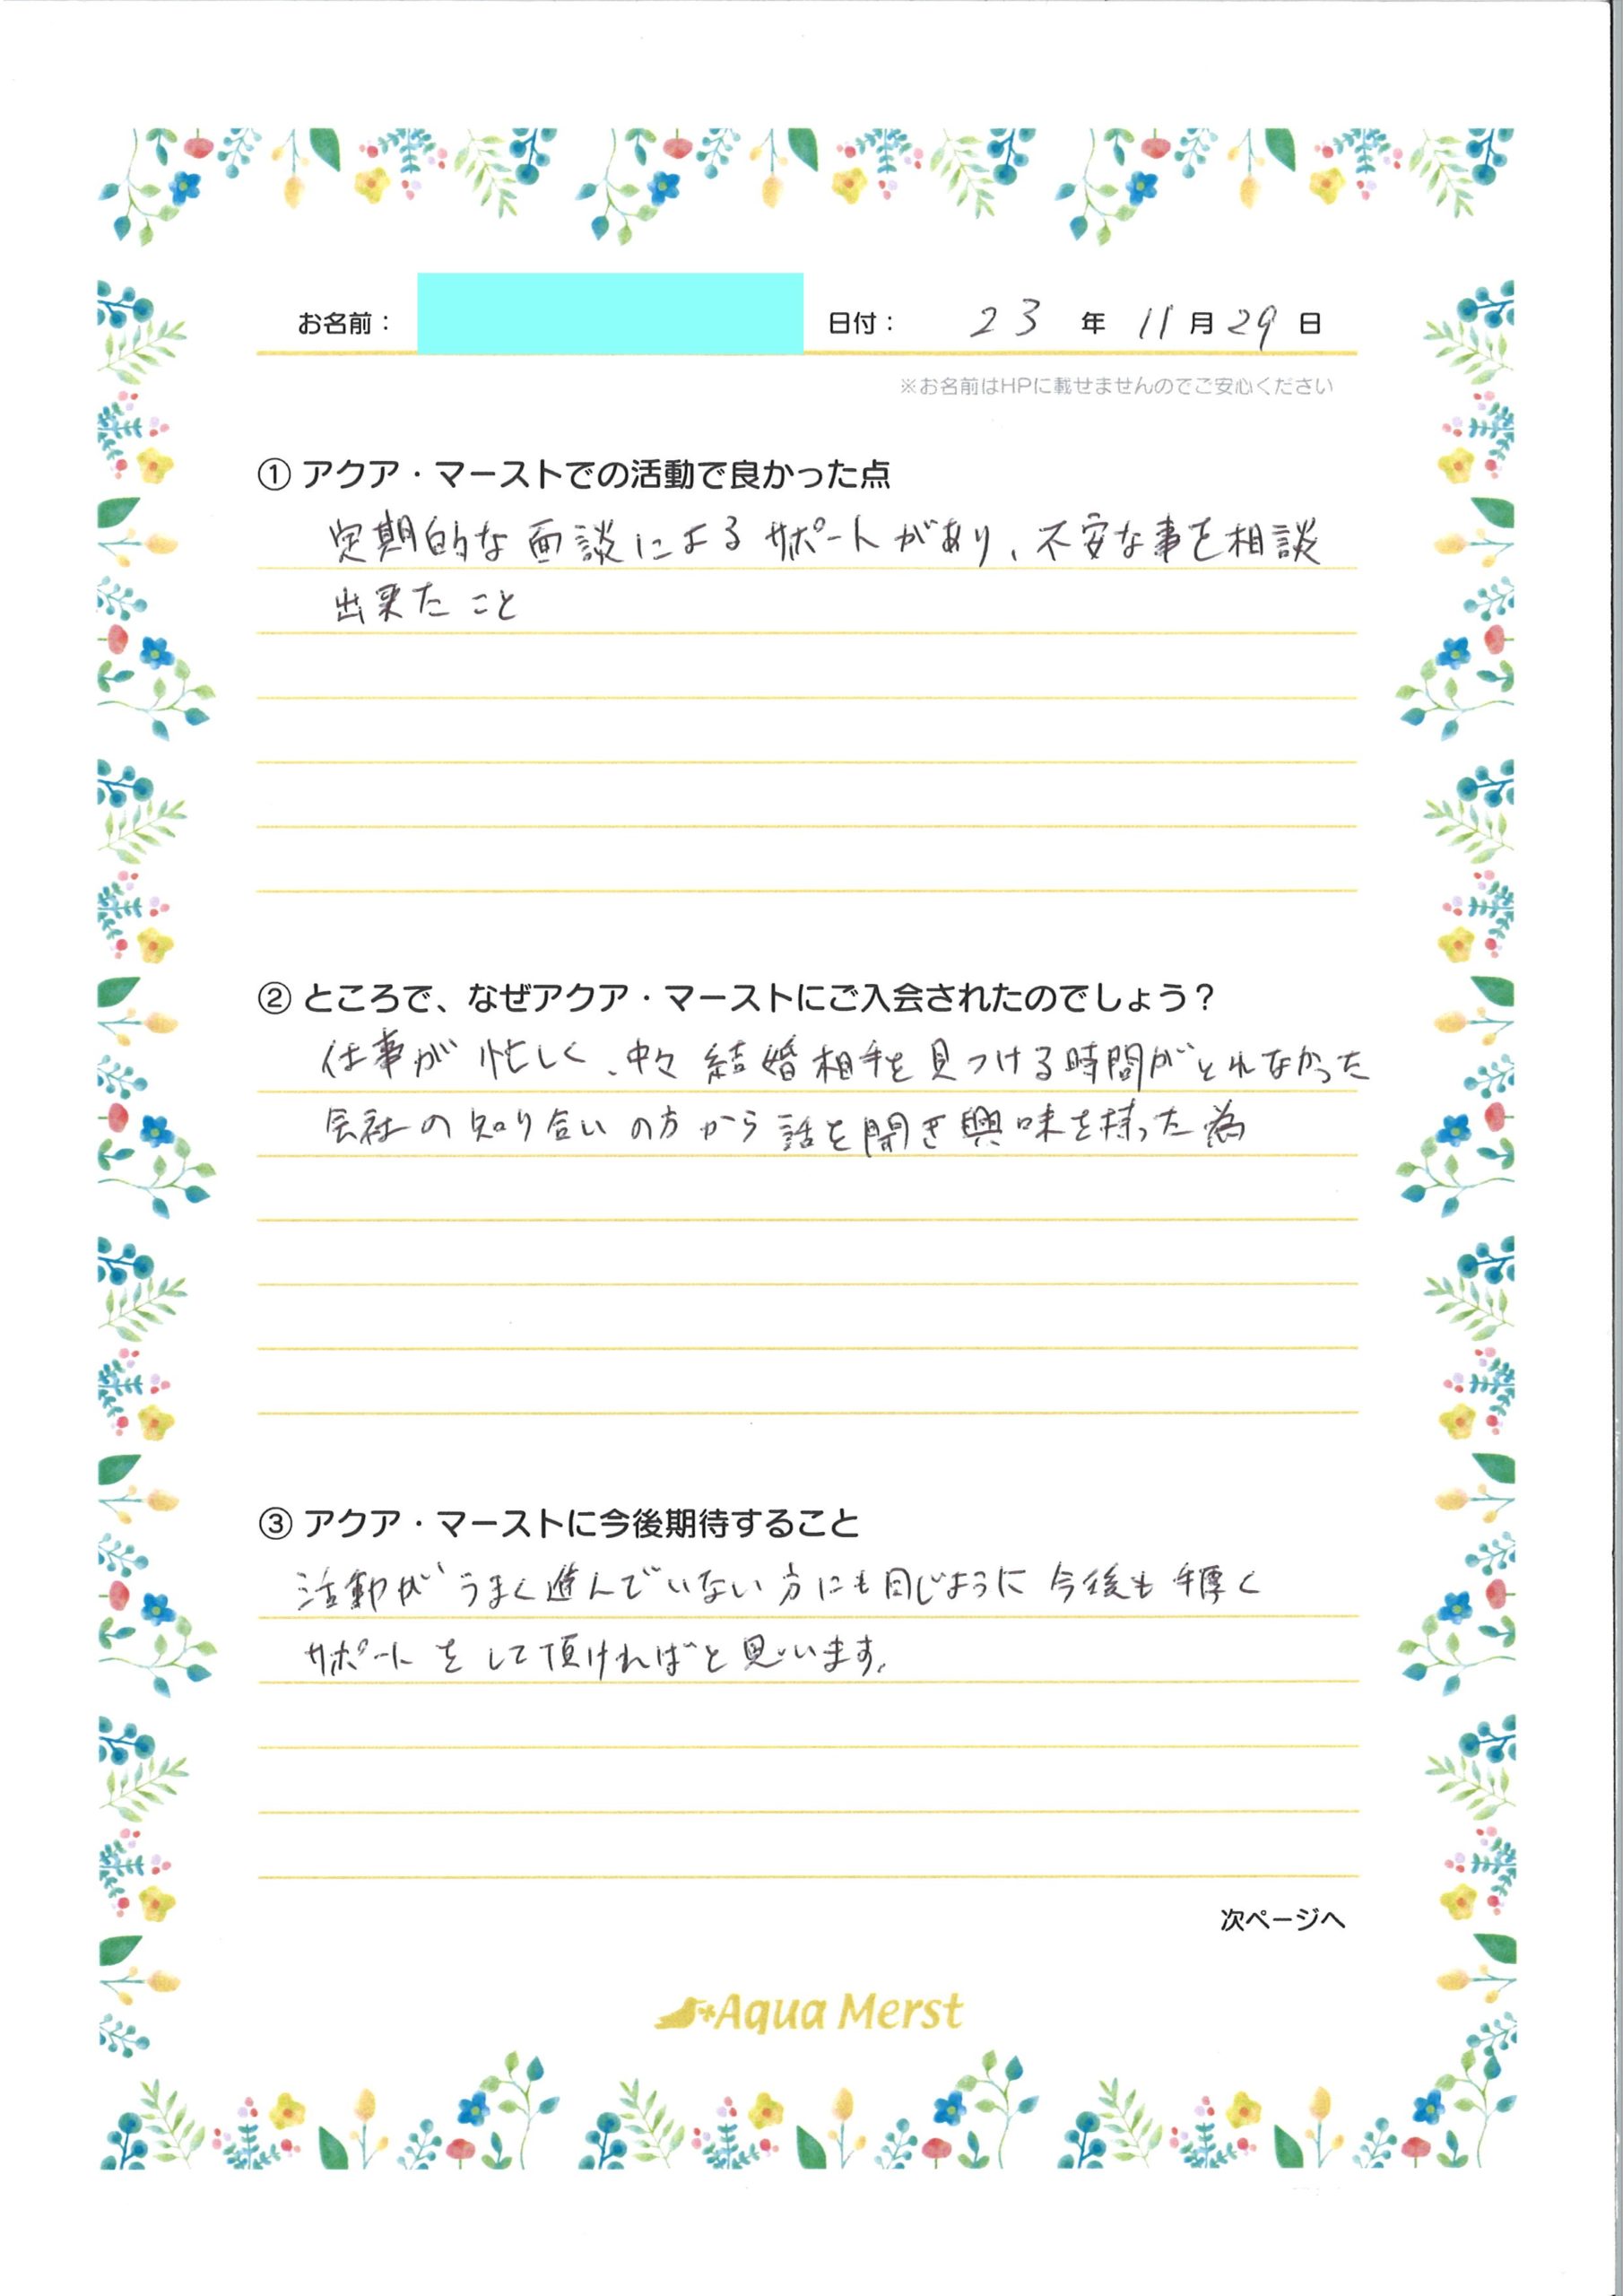 お名前： 日付： 23 年 11 月 29 日
※お名前はHPに載せませんのでご安心ください
① アクア・マーストでの活動で良かった点
定期的な面談によるサポートがあり、不安な事を相談
出来たこと
② ところで、なぜアクア・マーストにご入会されたのでしょう？
仕事が忙しく、中々結婚相手を見つける時間がとれなかった
会社の知り合いの方から話を聞き興味を持った為
③ アクア・マーストに今後期待すること
活動がうまく進んでいない方にも同じように今後も手厚く
サポートをして頂ければと思います。
次ページへ
Aqua Merst